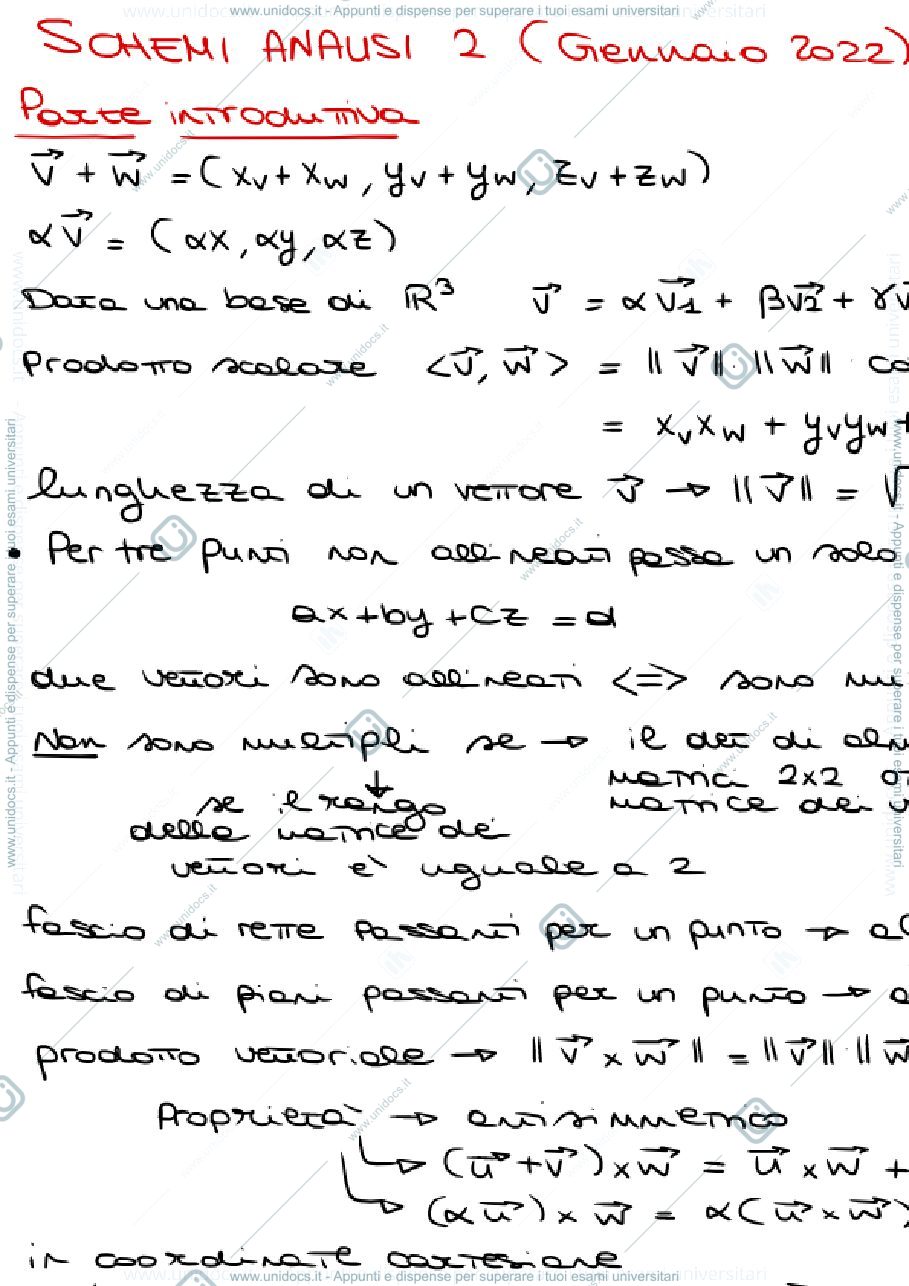 www.unidocs.it - Appunti e dispense per superare i tuoi esami universitari
SCHEMI ANALISI 2 (Gennaio 2022)
Parte introduttiva
v⃗ + w⃗ = (xv + xw, yv + yw, zv + zw)
αv⃗ = (αx, αy, αz)
Data una base di ℝ³ v⃗ = αv⃗1 + βv⃗2 + γv⃗
Prodotto scalare <v⃗, w⃗> = ||v⃗||·||w⃗|| co
= xvxw + yvyw+
lunghezza di un vettore v⃗ → ||v⃗|| = √
• Per tre punti non allineati passa un solo
ax+by+cz = d
due vettori sono allineati <=> sono mu
Non sono multipli se → il det di alm
matrici 2x2
↓
se il rango
matrice dei v
della matrice dei
vettori è uguale a 2
fascio di rette passanti per un punto → a
fascio di piani passanti per un punto → a
prodotto vettoriale → ||v⃗ x w⃗|| = ||v⃗||·||w⃗
Proprietà → antisimmetrico
→ (u⃗ + v⃗) x w⃗ = u⃗ x w⃗ +
→ (αu⃗) x w⃗ = α(u⃗ x w⃗)
in coordinate cartesiane
www.unidocs.it - Appunti e dispense per superare i tuoi esami universitari